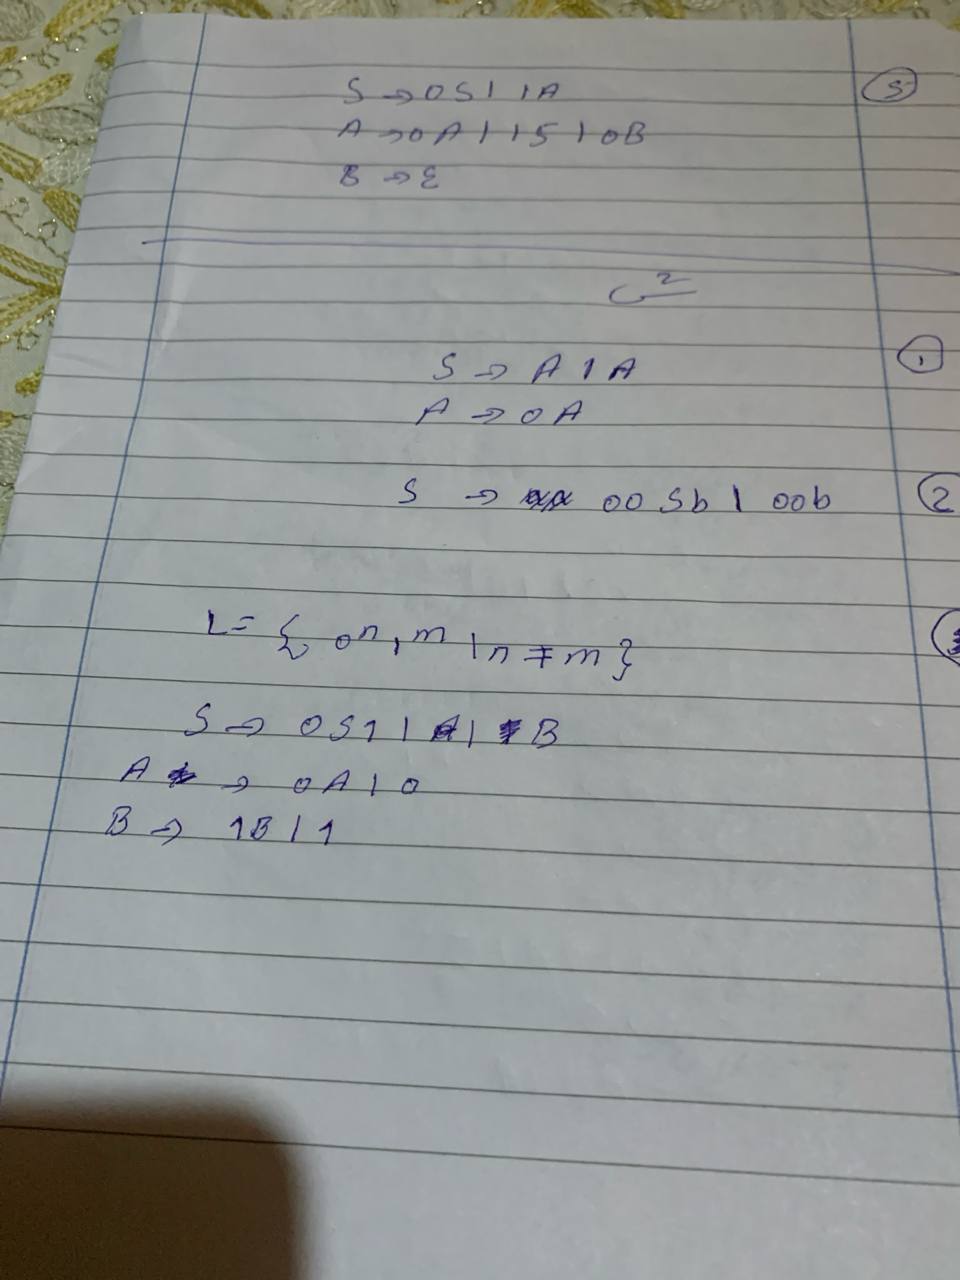 S → 0S | 1A ⑤
A → 0A | 1S | 0B
B → ε
S → A 1 A ①
A → 0A
S → 00Sb | 00b ②
L = { 0ⁿ 1ᵐ | n ≠ m }
S → 0S1 | A | B
A → 0A | 0
B → 1B | 1